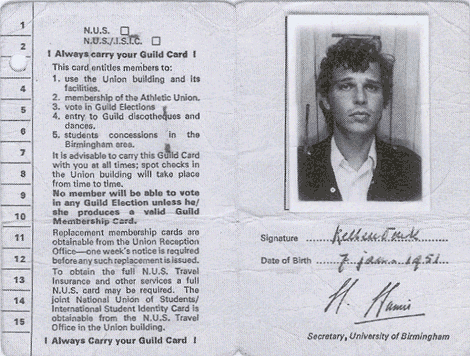 1
2
4
5
6
7
8
9
10
11
12
13
14
15
N.U.S. ☐
N.U.S./I.S.I.C. ☐
! Always carry your Guild Card !
This card entitles members to:
1. use the Union building and its
facilities.
2. membership of the Athletic Union.
3. vote in Guild Elections
4. entry to Guild discotheques and
dances.
5. students concessions in the
Birmingham area.
It is advisable to carry this Guild Card
with you at all times; spot checks in
the Union building will take place
from time to time.
No member will be able to vote
in any Guild Election unless he/
she produces a valid Guild
Membership Card.
Replacement membership cards are
obtainable from the Union Reception
Office—one week's notice is required
before any such replacement is issued.
To obtain the full N.U.S. Travel
Insurance and other services a full
N.U.S. card may be required. The
joint National Union of Students/
International Student Identity Card is
obtainable from the N.U.S. Travel
Office in the Union building.
! Always Carry your Guild Card !
Signature
Date of Birth 7 Jan. 1951
Secretary, University of Birmingham